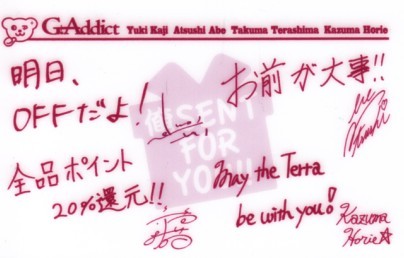 G.Addict Yuki Kaji Atsushi Abe Takuma Terashima Kazuma Horie
明日、
OFFだよ!
お前が大事!!
俺SENT
FOR
YOU!!
全品ポイント
20%還元!!
May the Terra
be with you!
Kazuma
Horie☆